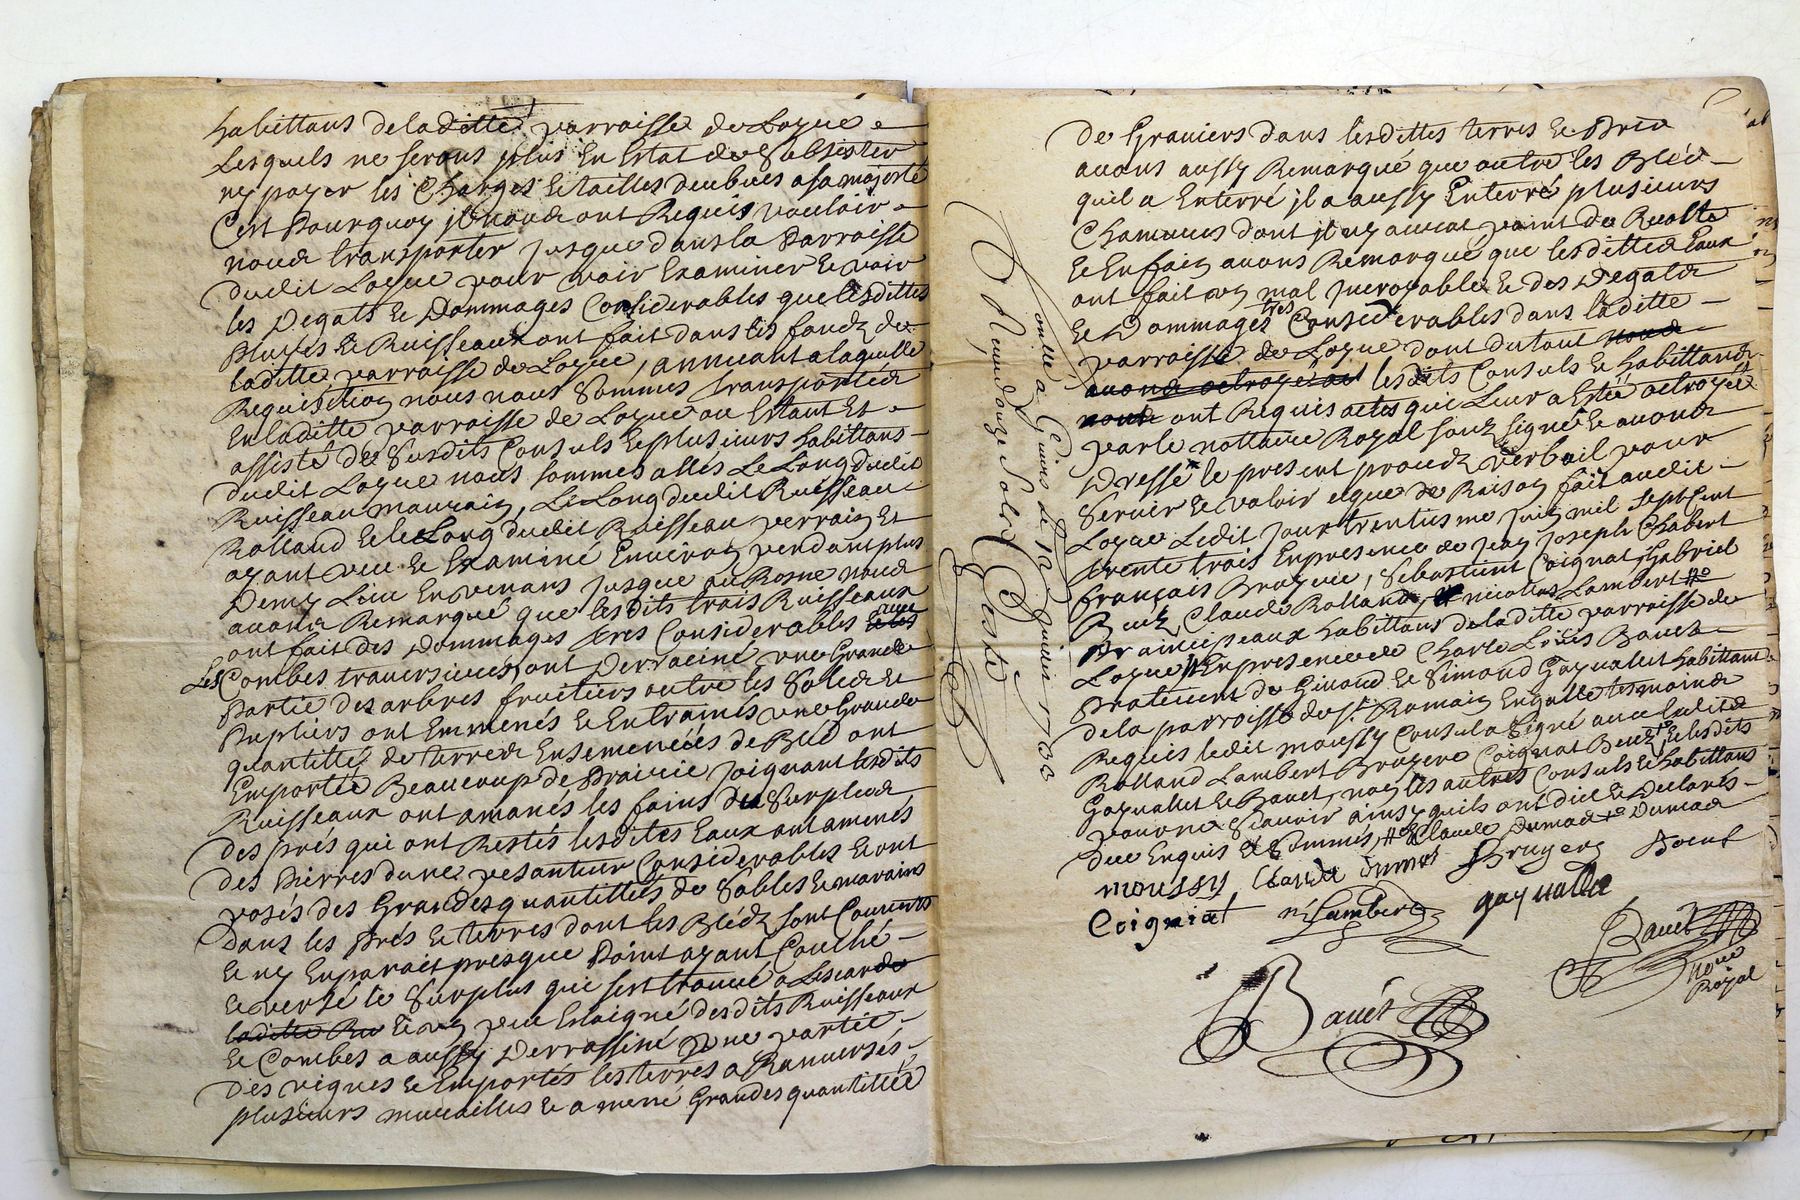 habittans de laditte parroisse de Loyue
Lesquels ne serons plus En Estat de Subsister
ny payer les Charges Et tailles deubues a sa majesté
C'est Pourquoy jl nous ont Requis vouloir
nous transporter jusque dans la Parroisse
dudit Loyue pour voir Examiner Et voir
les Degats Et Dommages Considerables que lesdittes
Pluyes Et Ruisseaux ont fait dans les fondz de
laditte parroisse de Loyue, annuant a laquelle
Requisition nous nous Sommes transportéz
En laditte parroisse de Loyue ou Estant Et
assisté des Susdits Consuls Et plusieurs habittans
dudit Loyue nous sommes allés Le Long dudit
Ruisseau mauvain, Le Long dudit Ruisseau
Rolland Et le Long dudit Ruisseau verrain Et
ayant veu Et Examiné Environ pendant plus
Demy Lieu En venans jusque au Rosne nous
avons Remarque que lesdits trois Ruisseaux
ont fait des Dommages tres Considerables
Les Combes traversieres, ont Derraciné une Grande
Partie des arbres fruitiers outre les Soles Et
Pupliers ont Emmenés Et Entrainés une Grande
quantittéz de terres Ensemencées de Bled ont
Emportée Beaucoup de Prairie joignant lesdits
Ruisseaux ont amanés les foins du Surplus
des prés qui ont Restés lesdites Eaux ont amenés
des Pierres dune pesanteur Considerables Et ont
posés des Grandes quantittés de Sables Et marains
dans les Prés Et terres dont les Blédz sont Couverts
Et ny En parait presque Point ayant Couché
Et versé le Surplus qui sest trouvé a Lescard
laditte Et un peu Esloigné desdits Ruisseaux
Et Combes a aussy Derrassiné une partie
des vignes Et Emportés les terres a Ranversés
plusieurs murailles Et a mené Grandes quantitiés
de Graviers dans lesdittes terres Et Prés
avons aussy Remarqué que outre les Bléd
quil a Enterré jl a aussy Enterré plusieurs
Chanvres dont jl ny aurat point de Recolte
Et En fain avons Remarque que lesdittes Eaux
ont fait un mal jncroyable Et des Degats
Et Dommages tres Considerables dans laditte
parroisse de Loyue dont du tout nous
avons octroyé act lesdits Consuls Et habittans
nous ont Requis actes qui Leur a Estée octroyée
par le nottaire Royal souz signé Et avons
Dressé le present procedz verbail pour
Servir Et valoir ce que de Raison fait audit
Loyue Ledit jour trentiesme juin mil sept cent
trente trois En presence de jean joseph Chabert
françois Bruyere, Sebastient Coignat, Gabriel
Buez, Claude Rolland, Et nicollas Lambert
Principeaux habittans de laditte parroisse de
Loyue En presence de Charle Louis Bauet
Pratecient de Givord Et Simond Gaynalet habittans
de la parroisse de St. Romain En qualle tesmoins
Requis ledit moussy Consul a Signé avec lesdits
Rolland Lambert Bruyere Coignat Buez Et lesdits
Gaynalet Et Bauet, non les autres Consuls Et habittans
pour ne Scavoir ainsy quils ont dit Et Declarés
due Enquis Et Sommés, Claude Dumas Dumas
moussy Claude Dumas Bruyere
Coigniat n Lambert gaynallet
Bauet
no.re
Royal
Bauet
Controllé a Givors le 12 Juillet 1733
Reçu douze Sols